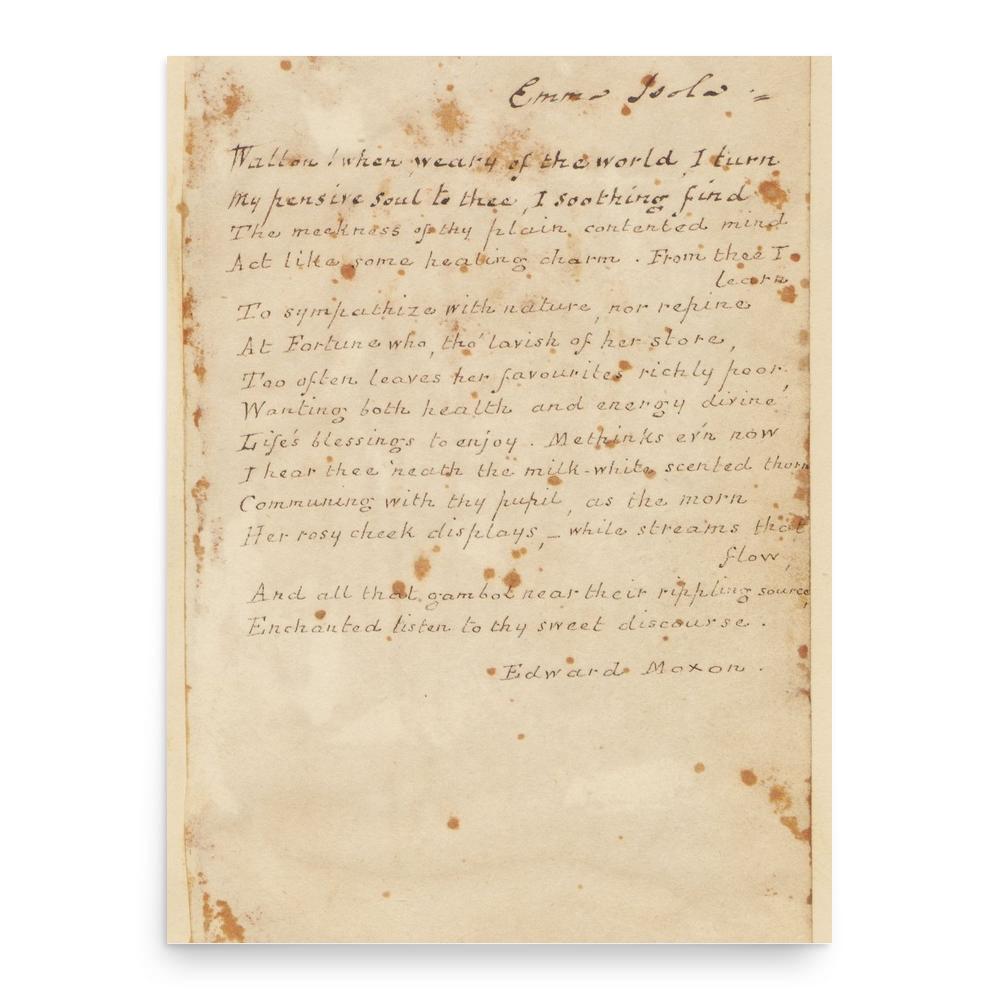 Emma Isola =
Walton! when weary of the world I turn
My pensive soul to thee, I soothing find
The meekness of thy plain contented mind
Act like some healing charm. From thee I
learn
To sympathize with nature, nor repine
At Fortune who, tho' lavish of her store,
Too often leaves her favourites richly poor,
Wanting both health and energy divine
Life's blessings to enjoy. Methinks ev'n now
I hear thee 'neath the milk-white scented thorn
Communing with thy pupil, as the morn
Her rosy cheek displays,— while streams that
flow,
And all that gambol near their rippling source,
Enchanted listen to thy sweet discourse.
Edward Moxon.